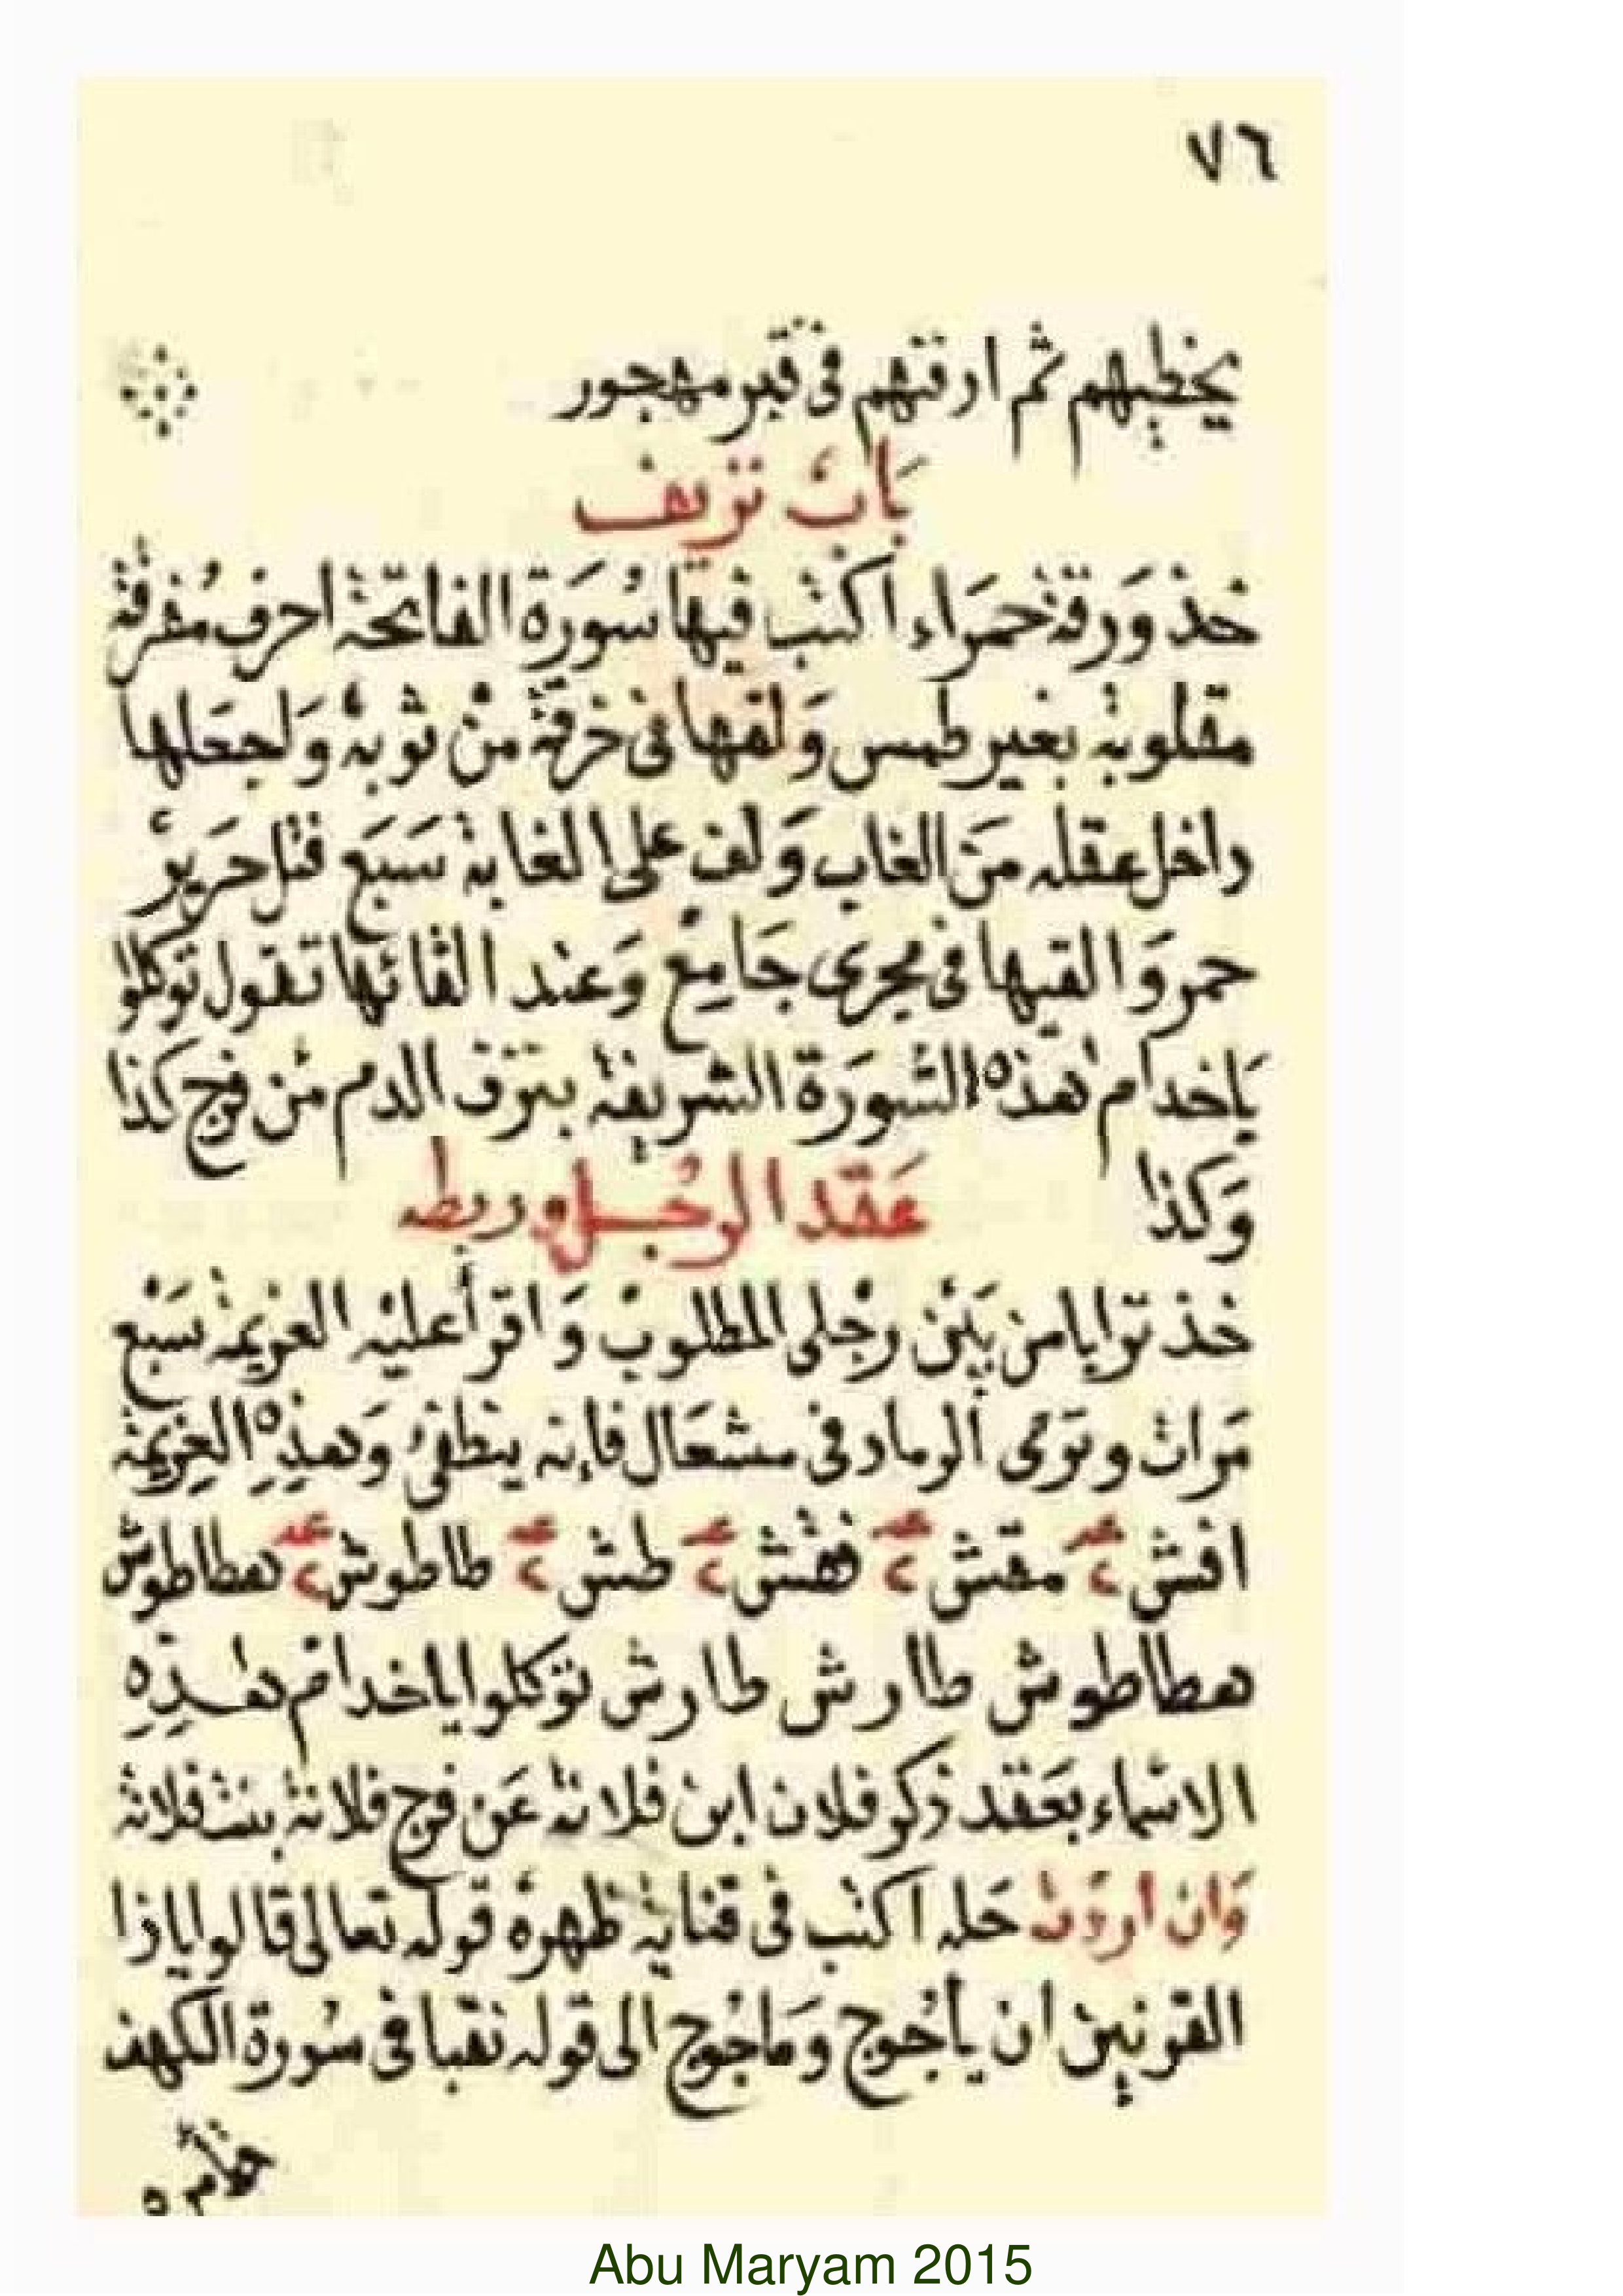 ٧٦
يخطيهم ثم ادفنهم في قبر مهجور
بَابُ نزيف
خذ وَرقة حمَراء اكتب فيها سُورَة الفاتحة احرف مُفرقة
مقلوبة بغير طمس وَلفها في خرقة منْ ثوبه وَاجعَلها
داخل عقله منَ الغاب وَلف على الغابة سَبَع فتل حَرير
حمر وَالقيها في مجرى جَامِع وَعند القائها تقول توكلوا
يَاخدام هذه السُّورَة الشريفة بنزف الدم من فرج كذا
وَكذا
عَقد الرجُل وربطه
خذ ترابا من بَيْن رجْلي المطلوبْ وَاقرأ عليْه العزيمة سَبْع
مَرات وترمى الرماد في مشعَال فإنه ينطفئ وَهذِه العزيمة
اقش ٢ مقش ٢ فقش ٢ طش ٢ طاطوش ٢ هطاطوش
هطاطوش طارش طارش توكلوا ياخدام هذِه
الاسماء بعَقد ذكر فلان ابن فلانة عَن فرج فلانة بنت فلانة
وَان اردَت حَله اكتب في قناية ظهرهُ قوله تعالى قالوا ياذا
القرنين ان يأجُوج وَمأجُوج الى قوله نقبا في سُورة الكهف
Abu Maryam 2015